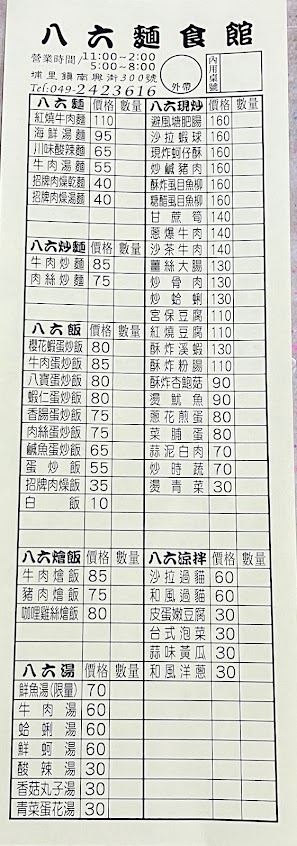 八六麵食館
營業時間/11:00~2:00
5:00~8:00
埔里鎮南興街300號
Tel:049-2423616
外帶
內用桌號
八六麵 價格 數量
紅燒牛肉麵 110
海鮮湯麵 95
川味酸辣麵 65
牛肉湯麵 55
招牌肉燥乾麵 40
招牌肉燥湯麵 40
八六炒麵 價格 數量
牛肉炒麵 85
肉絲炒麵 75
八六飯 價格 數量
櫻花蝦蛋炒飯 80
牛肉蛋炒飯 85
八寶蛋炒飯 80
蝦仁蛋炒飯 80
香腸蛋炒飯 75
肉絲蛋炒飯 75
鹹魚蛋炒飯 65
蛋炒飯 55
招牌肉燥飯 35
白飯 10
八六燴飯 價格 數量
牛肉燴飯 85
豬肉燴飯 75
咖哩雞絲燴飯 80
八六湯 價格 數量
鮮魚湯(限量) 70
牛肉湯 60
蛤蜊湯 60
鮮蚵湯 60
酸辣湯 30
香菇丸子湯 30
青菜蛋花湯 30
八六現炒 價格 數量
避風塘肥腸 160
沙拉蝦球 160
現炸蚵仔酥 160
炒鹹豬肉 160
酥炸虱目魚柳 160
糖醋虱目魚柳 160
甘蔗筍 140
蔥爆牛肉 140
沙茶牛肉 140
薑絲大腸 130
炒骨肉 130
炒蛤蜊 130
宮保豆腐 110
紅燒豆腐 110
酥炸溪蝦 130
酥炸粉腸 110
酥炸杏鮑菇 90
燙魷魚 90
蔥花煎蛋 80
菜脯蛋 80
蒜泥白肉 70
炒時蔬 70
燙青菜 30
八六涼拌 價格 數量
沙拉過貓 60
和風過貓 60
皮蛋嫩豆腐 30
台式泡菜 30
蒜味黃瓜 30
和風洋蔥 30